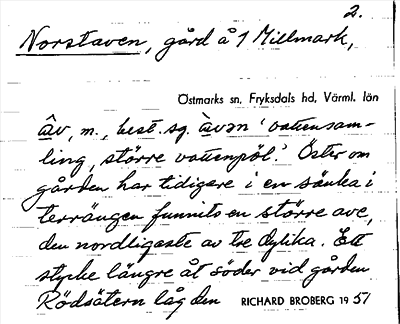 2.
Norstaven, gård å 1 Millmark,
Östmarks sn, Fryksdals hd, Värml. län
âv, m., best. sg. àvən 'vattensam-
ling, större vattenpöl.' Öster om
gården har tidigare i en sänka i
terrängen funnits en större ave,
den nordligaste av tre dylika. Ett
stycke längre åt söder vid gården
Rödsätern låg den RICHARD BROBERG 1957